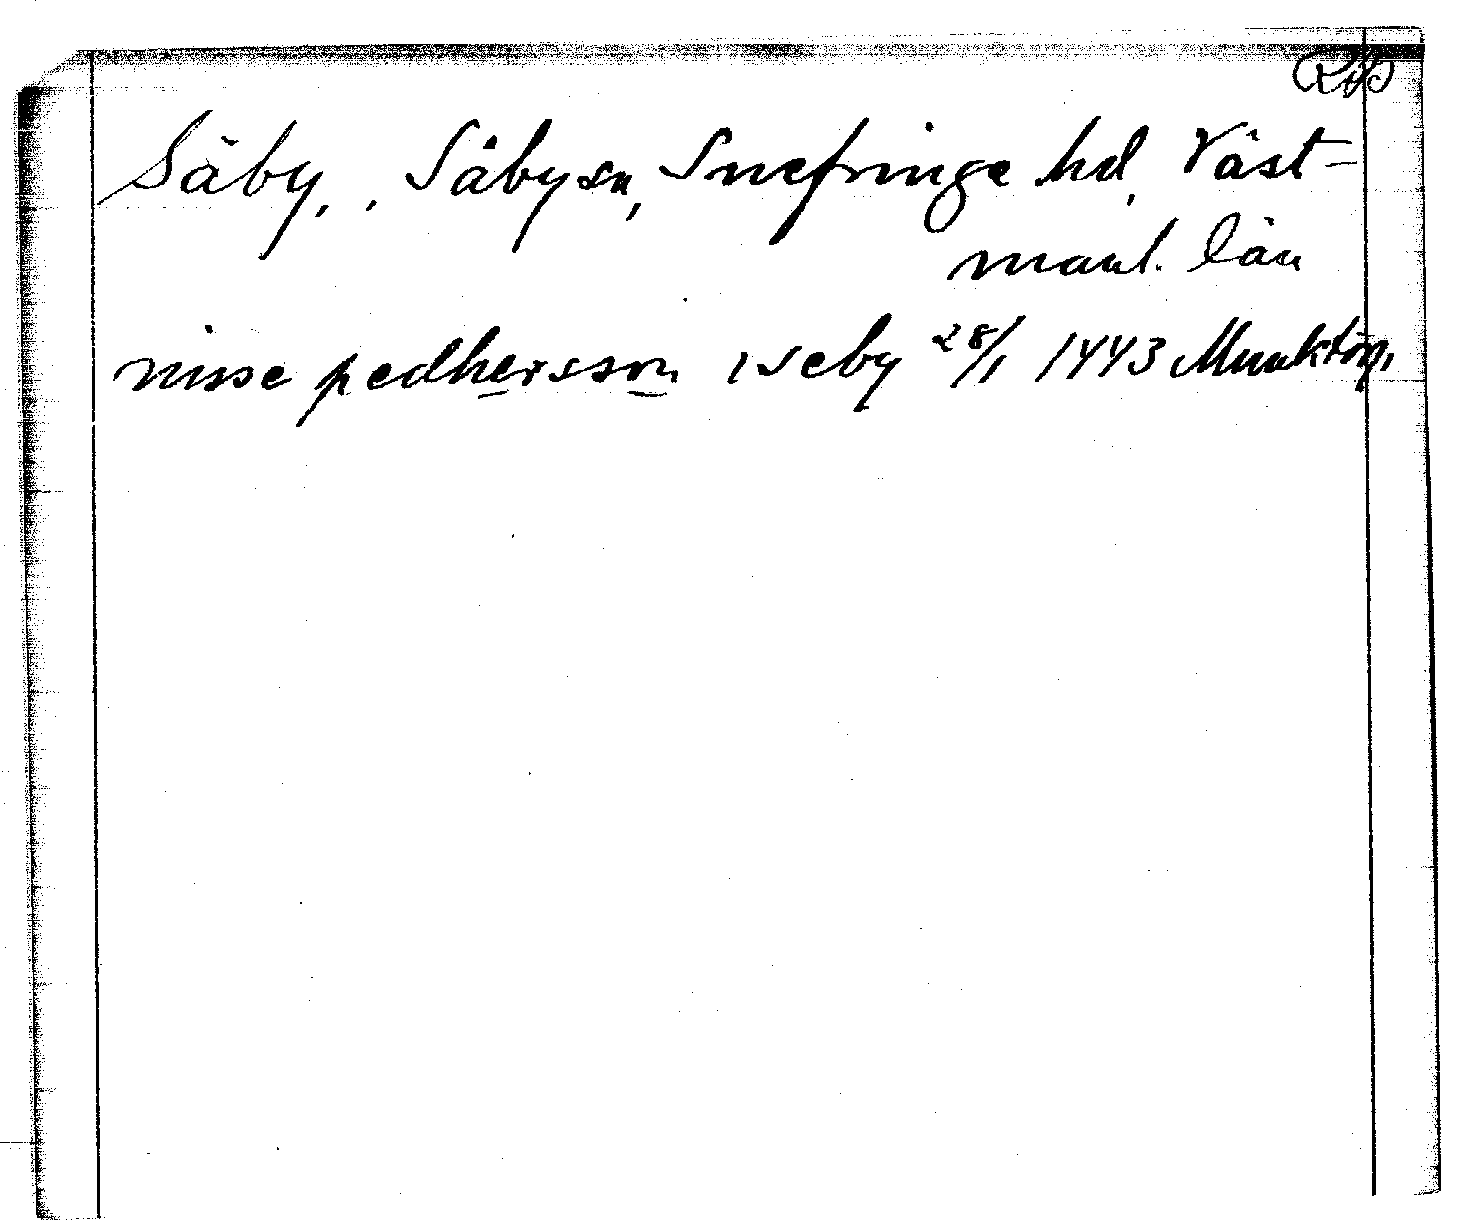 Säby, , Säby sn, Snefringe hd, Väst-
manl. län
nisse pedhersson i seby 28/1 1443 Munktorp,